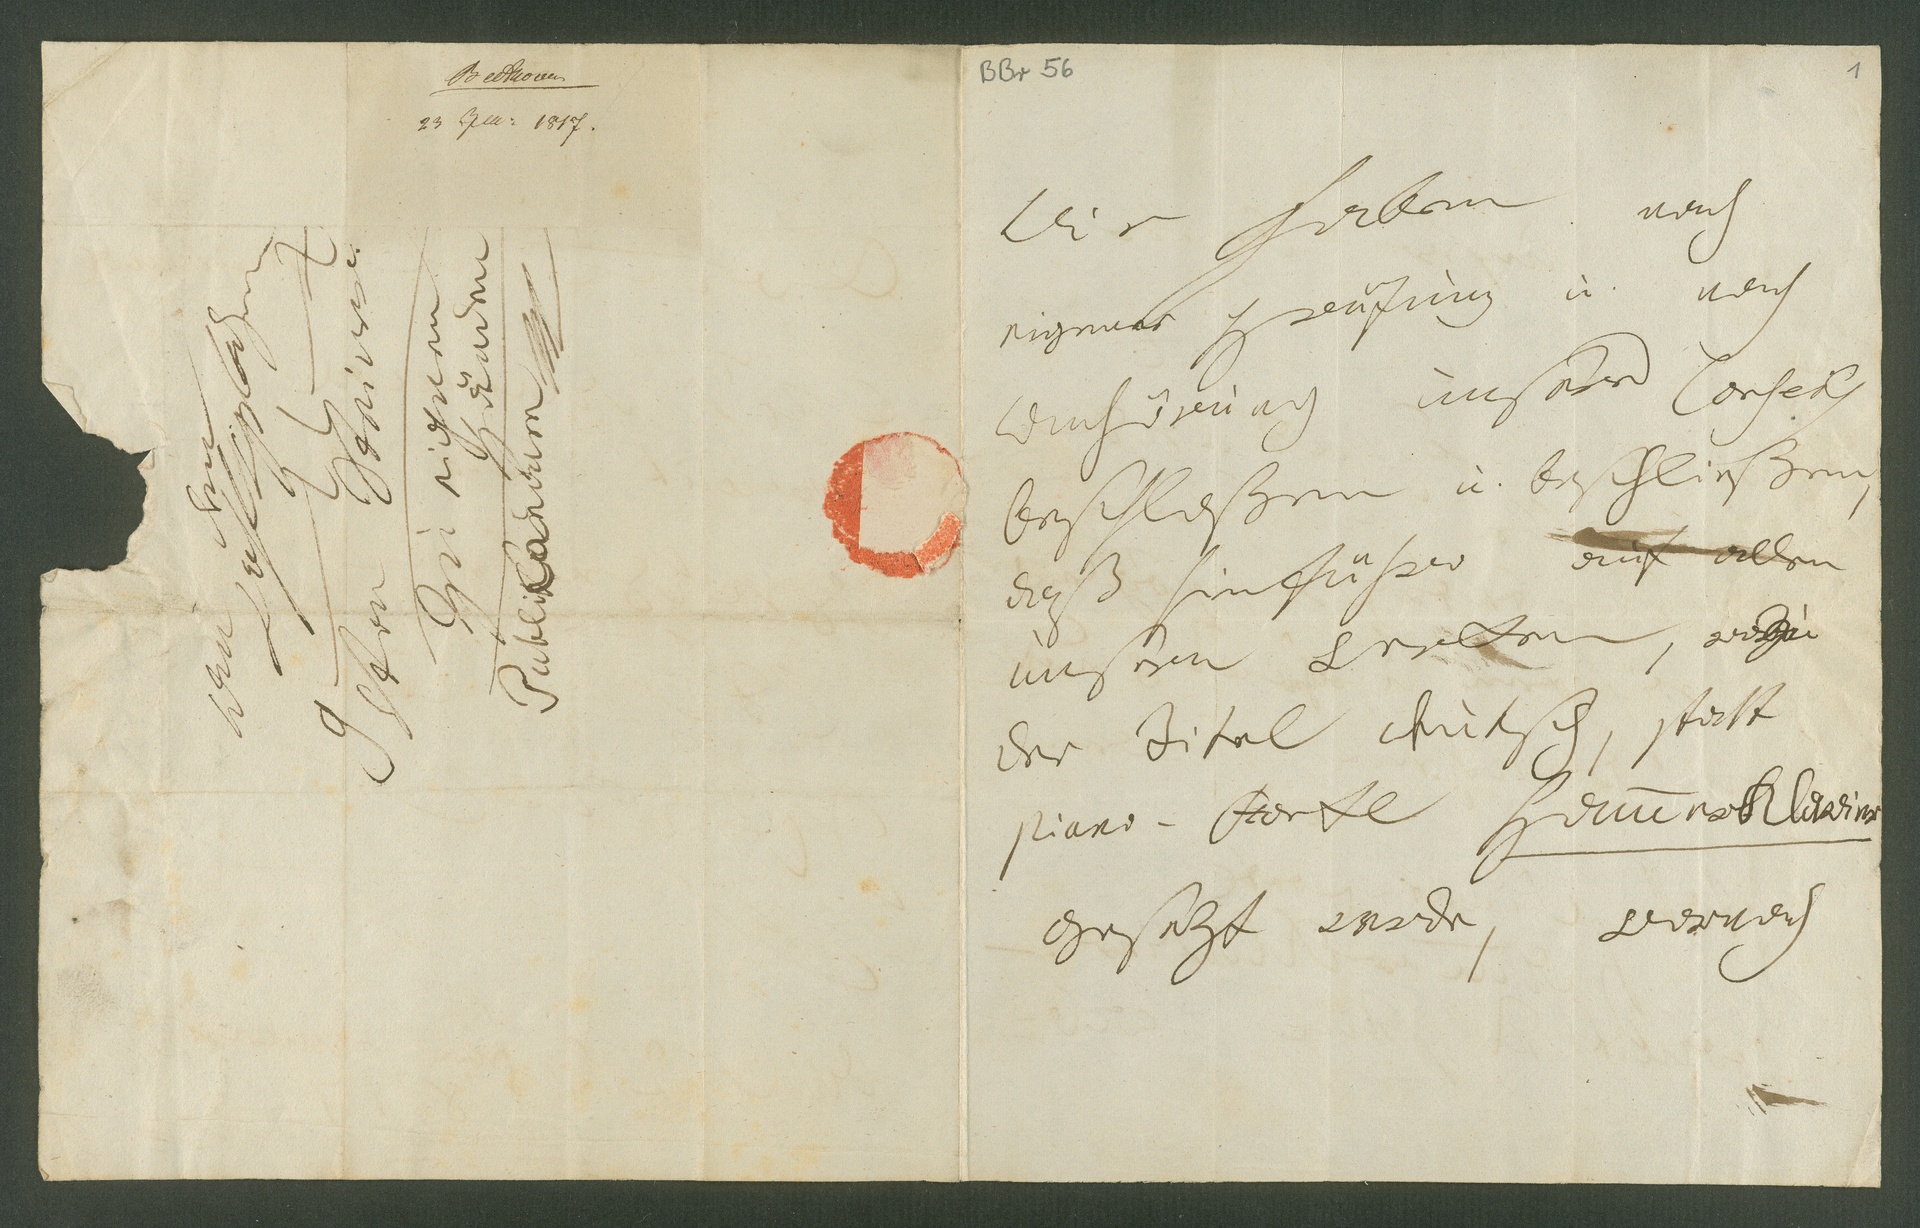 Beethoven
23 Jen: 1817.
BBr 56
1
Wir haben nach
eigener Prüfung u. nach
anhörung unsers Conseils
beschloßen u. beschließen,
daß hinführo auf allen
unsern werken, wozu
der Titel deutsch, statt
piano-forte Ham̅erKlavier
gesezt werde, wornach
an den
Wohlgebohrnen
G–l–t
von Steiner
Zu eigenen
Händen
PubliCandum